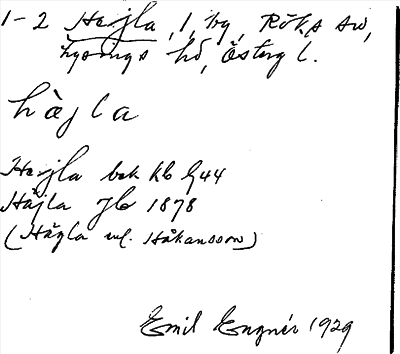 1-2 Hejla, 1, by, Röks sn,
Lysings hd, Östergl.
hàjla
Hejla bek kb G44
Häjla Jb 1878
(Hägla enl. Håkansson)
Emil Engnér 1929